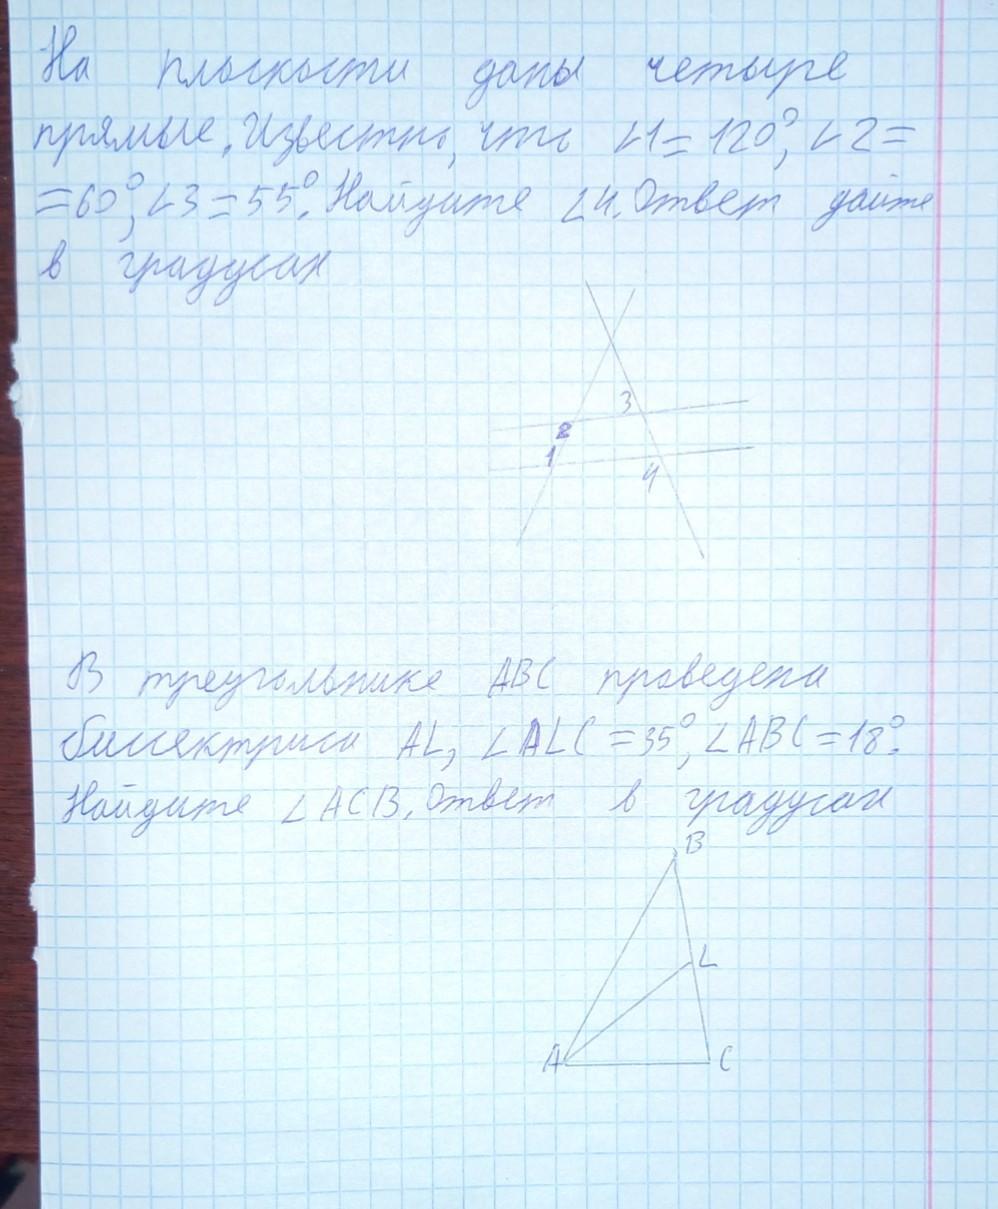 На плоскости даны четыре
прямые. Известно, что ∠1= 120°, ∠2=
=60°, ∠3=55°. Найдите ∠4. Ответ дайте
в градусах
3
2
1
4
В треугольнике ABC проведена
биссектриса AL, ∠ALC=35°, ∠ABC=18°.
Найдите ∠ACB. Ответ в градусах
B
L
A
C